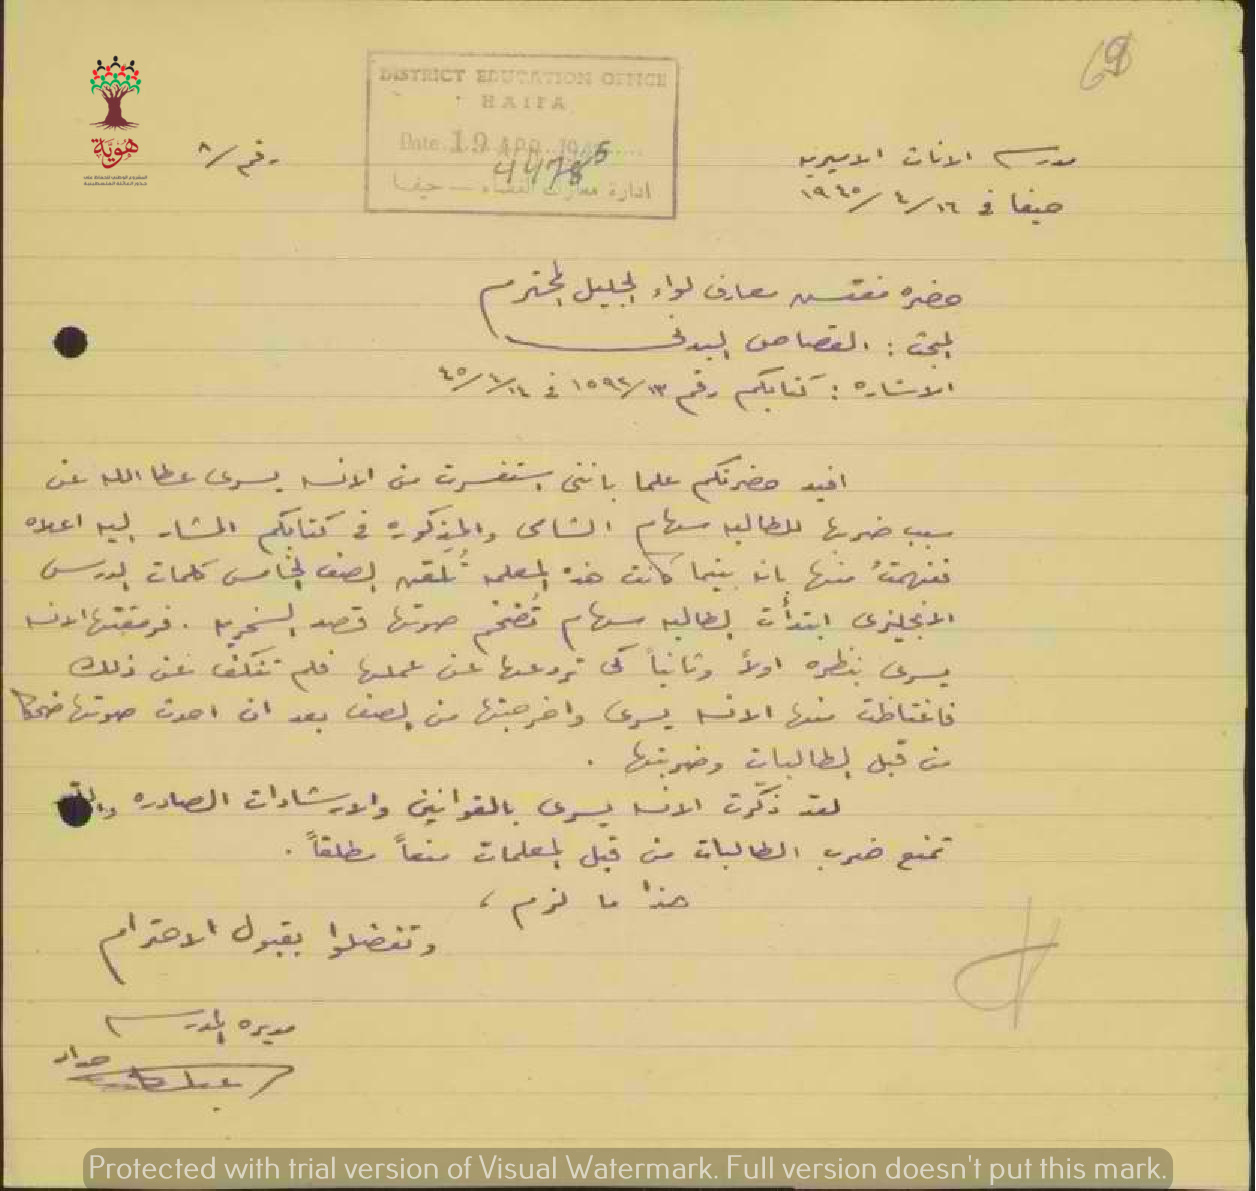 69
DISTRICT EDUCATION OFFICE
HAIFA
Date 19 APR 1945
4478
ادارة معارف القضاء — حيفا
هُوِيَّة
رقم /٨
مدرسة الاناث الاميرية
حيفا في ١٦/٤/١٩٤٥
حضرة مفتش معارف لواء الجليل المحترم
المبحث : القصاص البدني
الاشارة : كتابكم رقم ١٥٩٢/١٣ في ١٤/٤/٤٥
افيد حضرتكم علما بانني استفسرت من الانسه يسرى عطا الله عن
سبب ضربها للطالبه سهام الشامي والمذكوره في كتابكم المشار اليه اعلاه
ففهمتُ منها بانه بينما كانت هذه المعلمه تُلقن الصف الخامس كلمات الدرس
الانجليزي ابتدأت الطالبه سهام تُضخم صوتها قصد السخريه . فرمقتها الانسه
يسرى بنظره اولاً وثانياً كي تردعها عن عملها فلم تنكف عن ذلك
فاغتاظت منها الانسه يسرى واخرجتها من الصف بعد ان احدث صوتها ضحكا
من قبل الطالبات وضربتها .
لقد ذكّرت الانسه يسرى بالقوانين والارشادات الصادره والتي
تمنع ضرب الطالبات من قبل المعلمات منعاً مطلقاً .
هذا ما لزم ،
وتفضلوا بقبول الاحترام
مديره المدرسه
حداد
Protected with trial version of Visual Watermark. Full version doesn't put this mark.